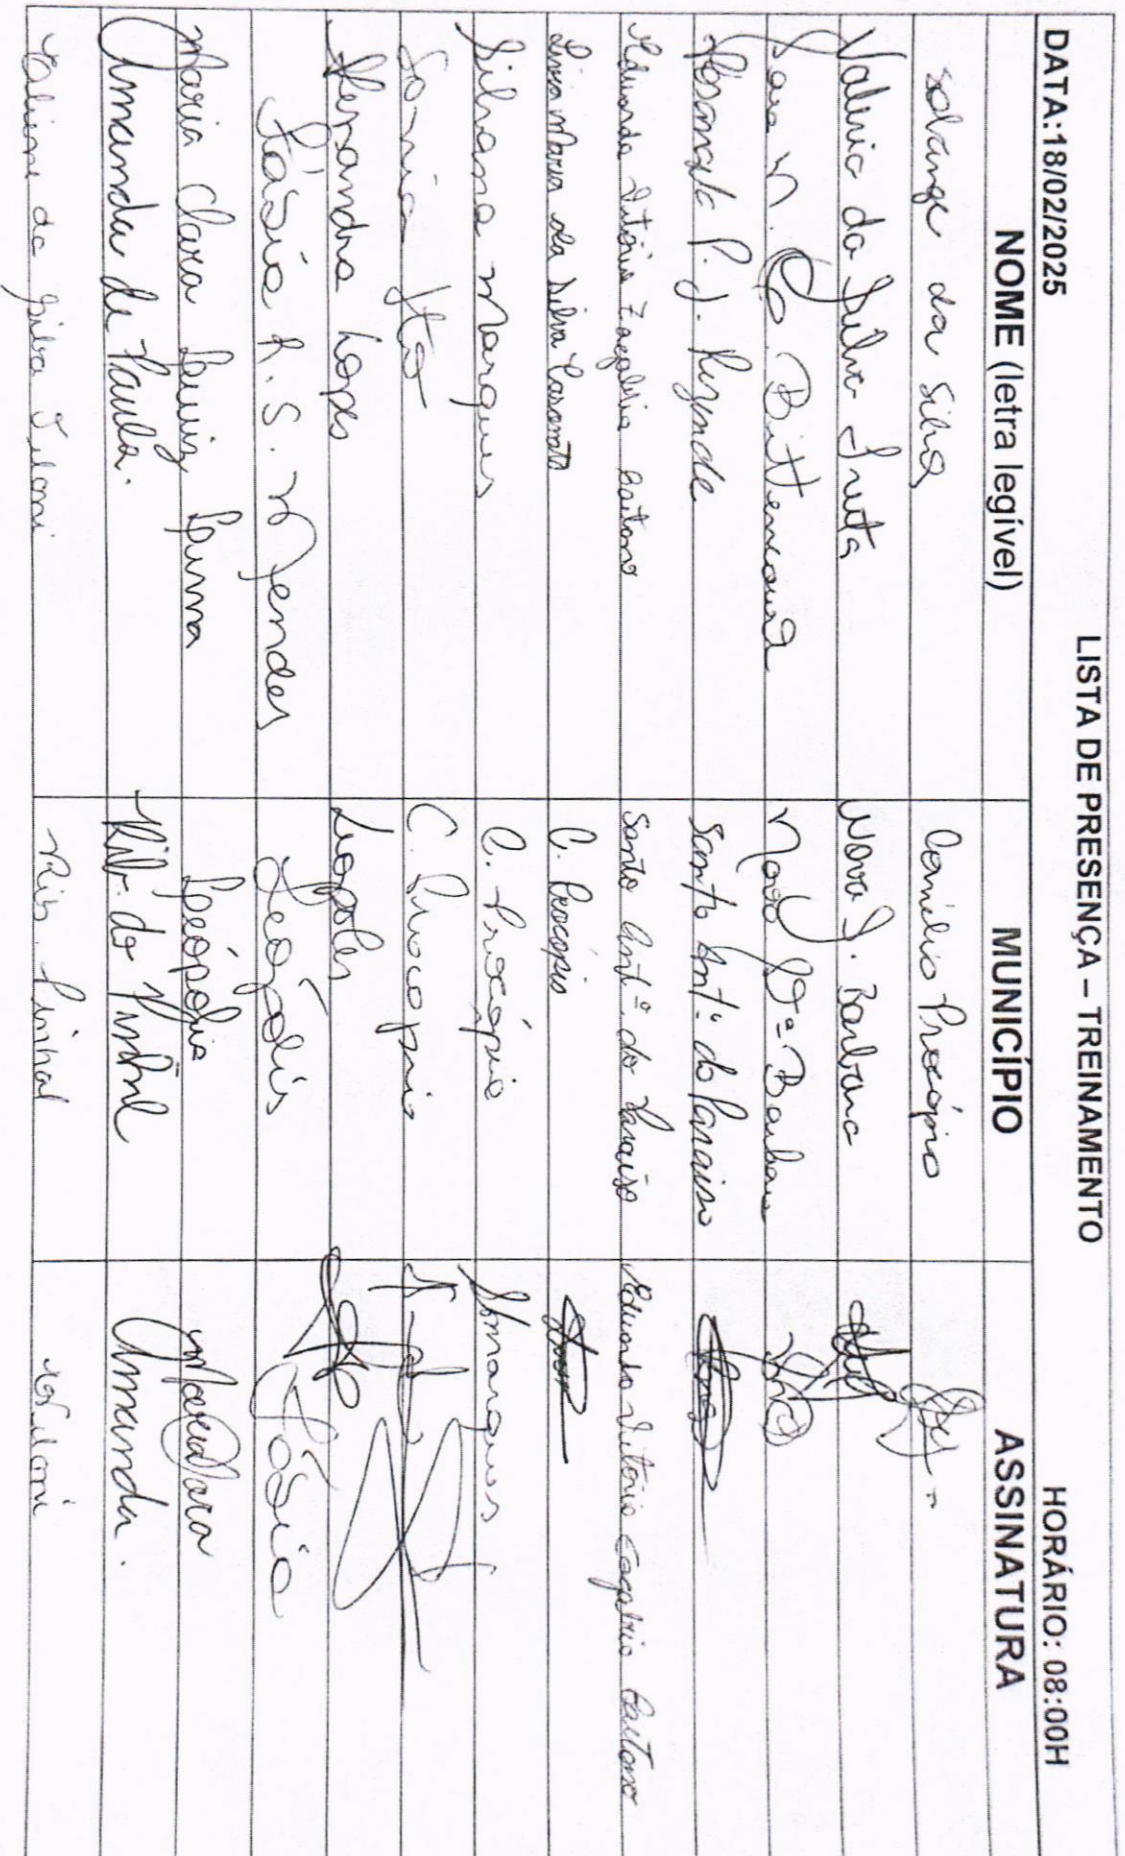 LISTA DE PRESENÇA – TREINAMENTO
DATA:18/02/2025 HORÁRIO: 08:00H
NOME (letra legível) MUNICÍPIO ASSINATURA
Solange da Silva Cornélio Procópio
Valeria da Silva Fruta Nova S. Barbara
M. Bittencourt Nova Stª Barbara
P. J. Rezende Santo Antº do Paraiso
Eduardo Vitório Caetano Santo Antº do Paraiso Eduardo Vitório Caetano
Livia Maria da Silva C. Procópio
Silvana Marques C. Procópio Smarques
Sonia Ito C. Procopio
Alessandra Lopes Leopolis
Tásia R. S. Mendes Leópolis Tásia
Maria Clara Luiz Leópolis Maria Clara
Amanda de Paula. Rib. do Pinhal Amanda.
da Silva Rib. Pinhal